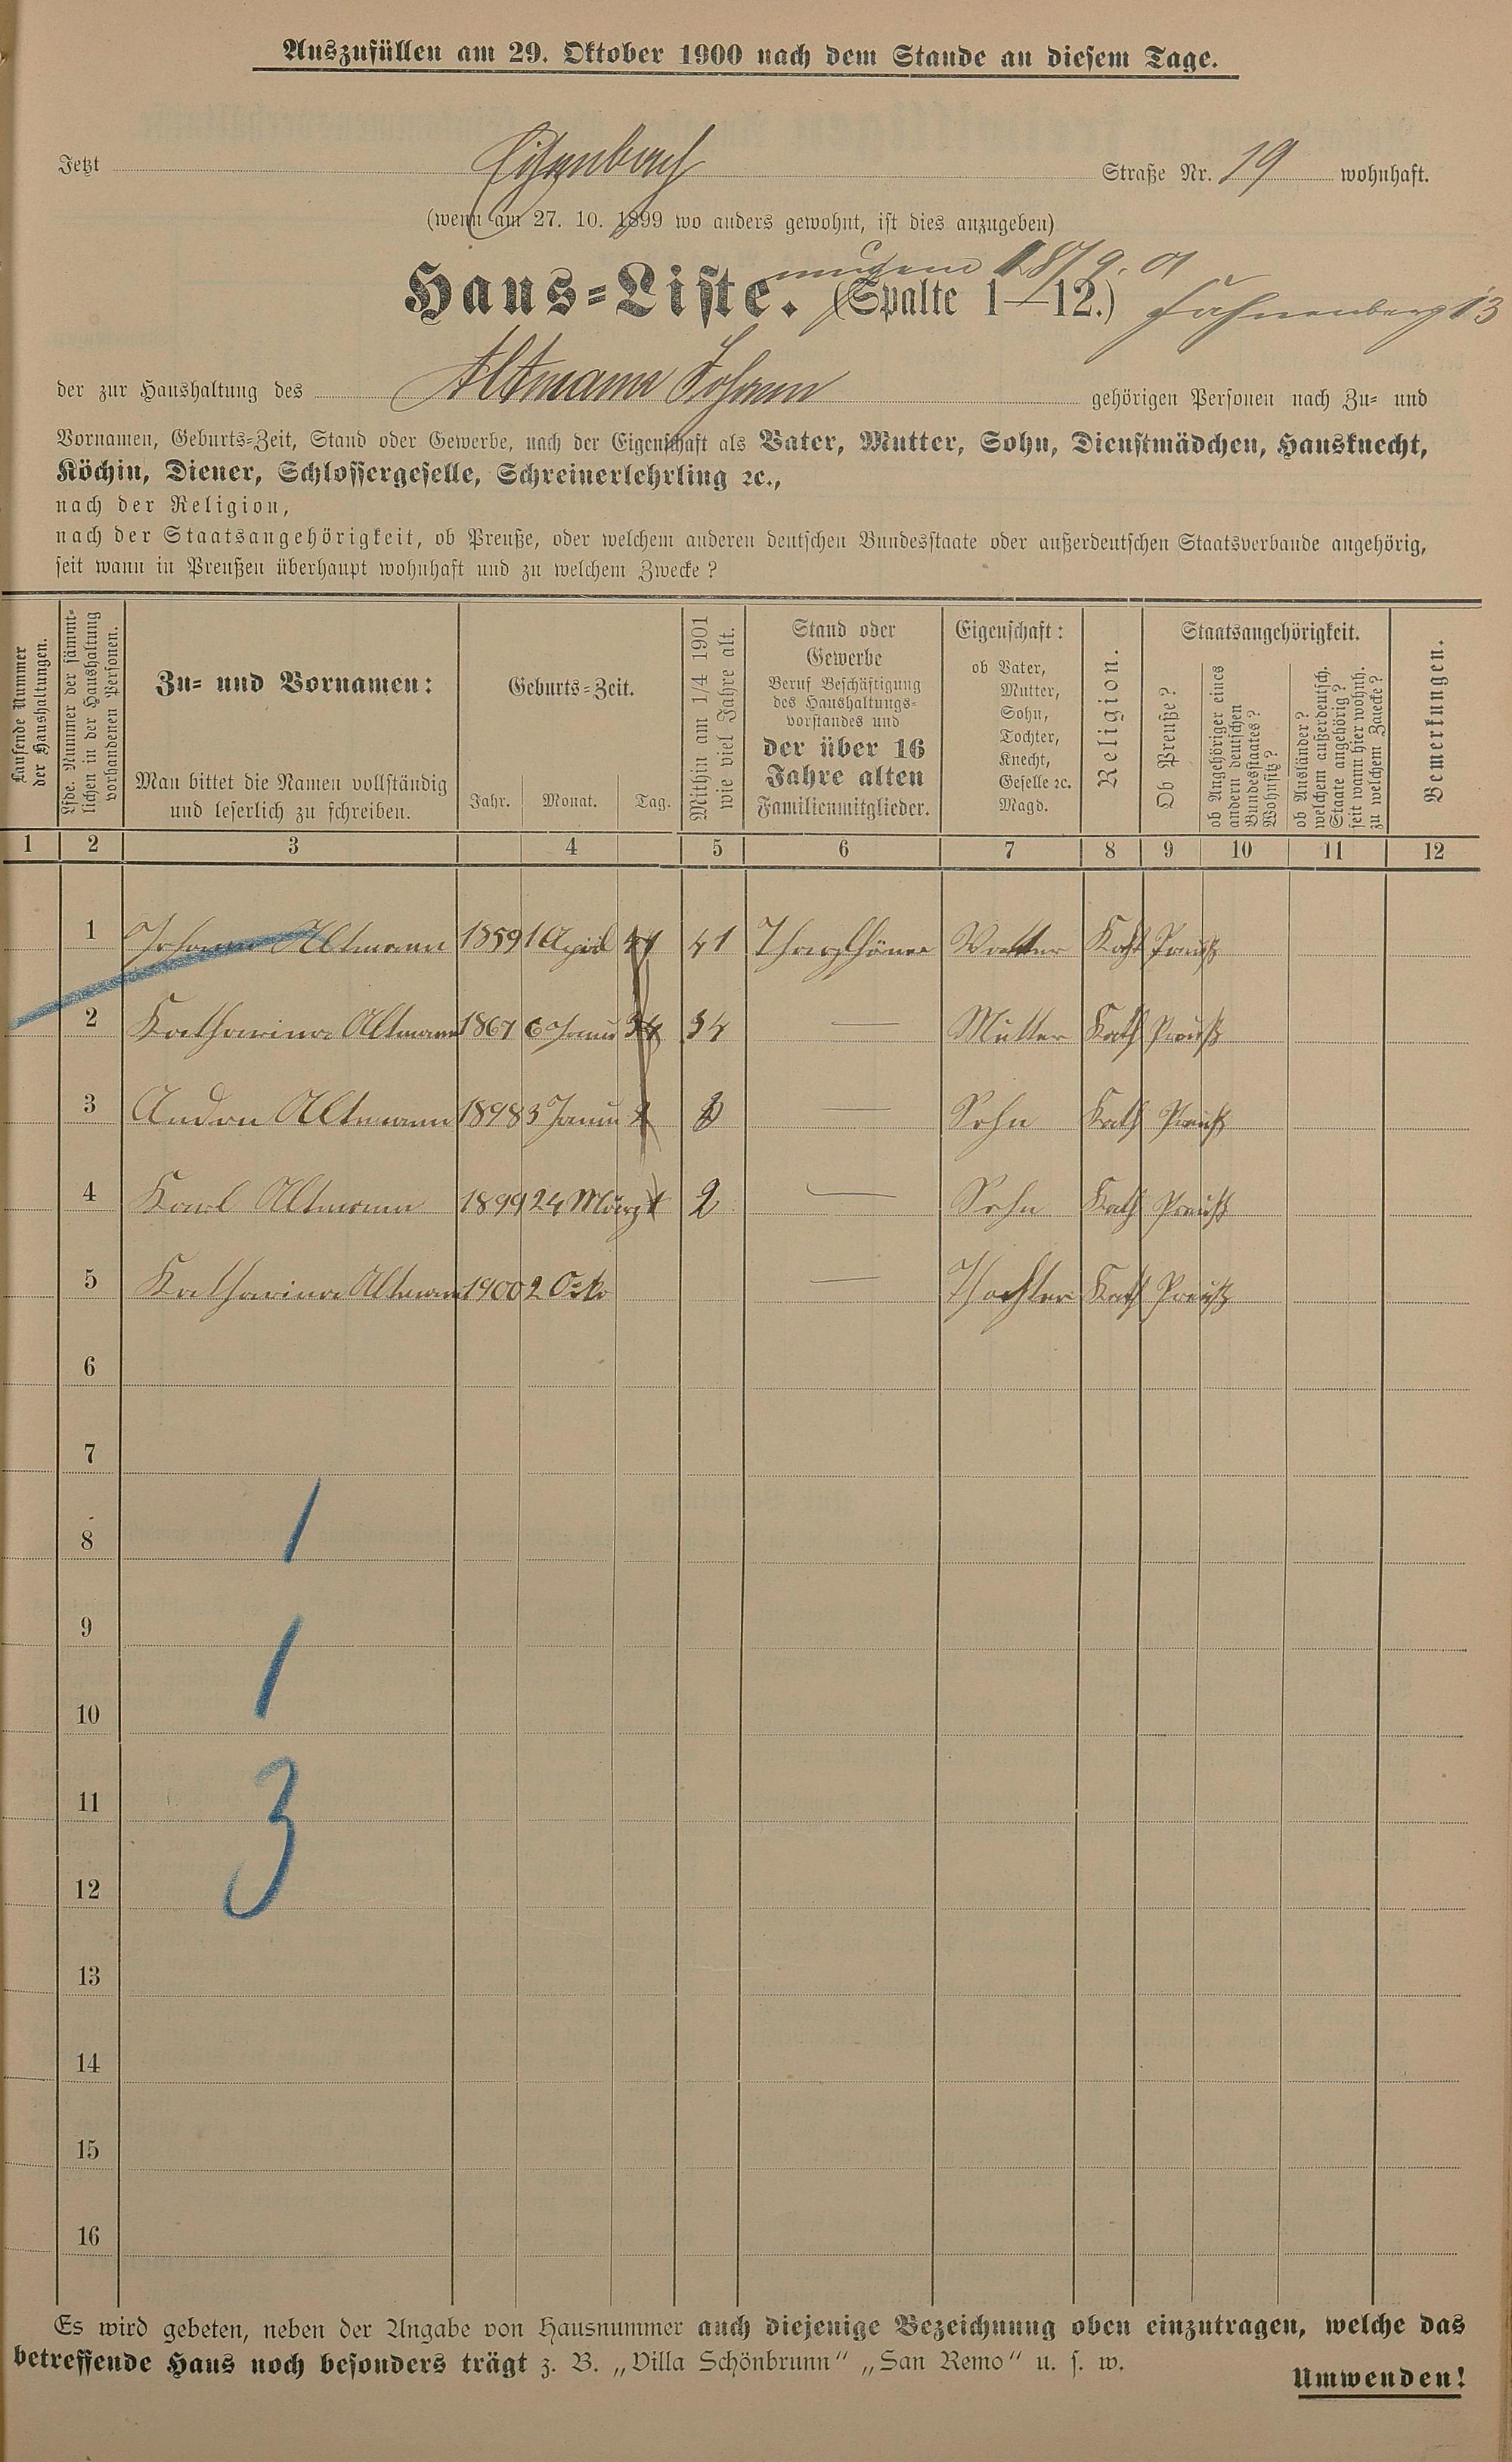 Auszufüllen am 29. Oktober 1900 nach dem Stande an diesem Tage.
Jetzt Straße Nr. 19 wohnhaft.
(wenn am 27. 10. 1899 wo anders gewohnt, ist dies anzugeben)
18/9. 01
Haus-Liste. (Spalte 1—12.) 13
der zur Haushaltung des Altmann Johann gehörigen Personen nach Zu- und
Vornamen, Geburts-Zeit, Stand oder Gewerbe, nach der Eigenschaft als Vater, Mutter, Sohn, Dienstmädchen, Hausknecht,
Köchin, Diener, Schlossergeselle, Schreinerlehrling ꝛc.,
nach der Religion,
nach der Staatsangehörigkeit, ob Preuße, oder welchem anderen deutschen Bundesstaate oder außerdeutschen Staatsverbande angehörig,
seit wann in Preußen überhaupt wohnhaft und zu welchem Zwecke?
Laufende Nummer
der Haushaltungen.
Lfde. Nummer der sämmt-
lichen in der Haushaltung
vorhandenen Personen.
Zu- und Vornamen:
Man bittet die Namen vollständig
und leserlich zu schreiben.
Geburts-Zeit.
Jahr. Monat. Tag.
Mithin am 1/4 1901
wie viel Jahre alt.
Stand oder
Gewerbe
Beruf Beschäftigung
des Haushaltungs-
vorstandes und
der über 16
Jahre alten
Familienmitglieder.
Eigenschaft:
ob Vater,
Mutter,
Sohn,
Tochter,
Knecht,
Geselle ꝛc.
Magd.
Religion.
Staatsangehörigkeit.
Ob Preuße?
ob Angehöriger eines
andern deutschen
Bundesstaates?
Wohnsitz?
ob Ausländer?
welchem außerdeutsch.
Staate angehörig?
seit wann hier wohnh.
zu welchem Zwecke?
Bemerkungen.
1 2 3 4 5 6 7 8 9 10 11 12
1 Johann Altmann 1859 1 April 41 Vatter Kath Preuß
2 Katharina Altmann 1867 6 Janu 34 — Mutter Kath Preuß
3 Andon Altmann 1898 3 Janu — Sohn Kath Preuß
4 Karl Altmann 1899 24 März 2 — Sohn Kath Preuß
5 Katharina Altmann 1900 2 Octo — Thochter Kath Preuß
6
7
8
1
9
1
10
11
3
12
13
14
15
16
Es wird gebeten, neben der Angabe von Hausnummer auch diejenige Bezeichnung oben einzutragen, welche das
betreffende Haus noch besonders trägt z. B. „Villa Schönbrunn“ „San Remo“ u. s. w.
Umwenden!